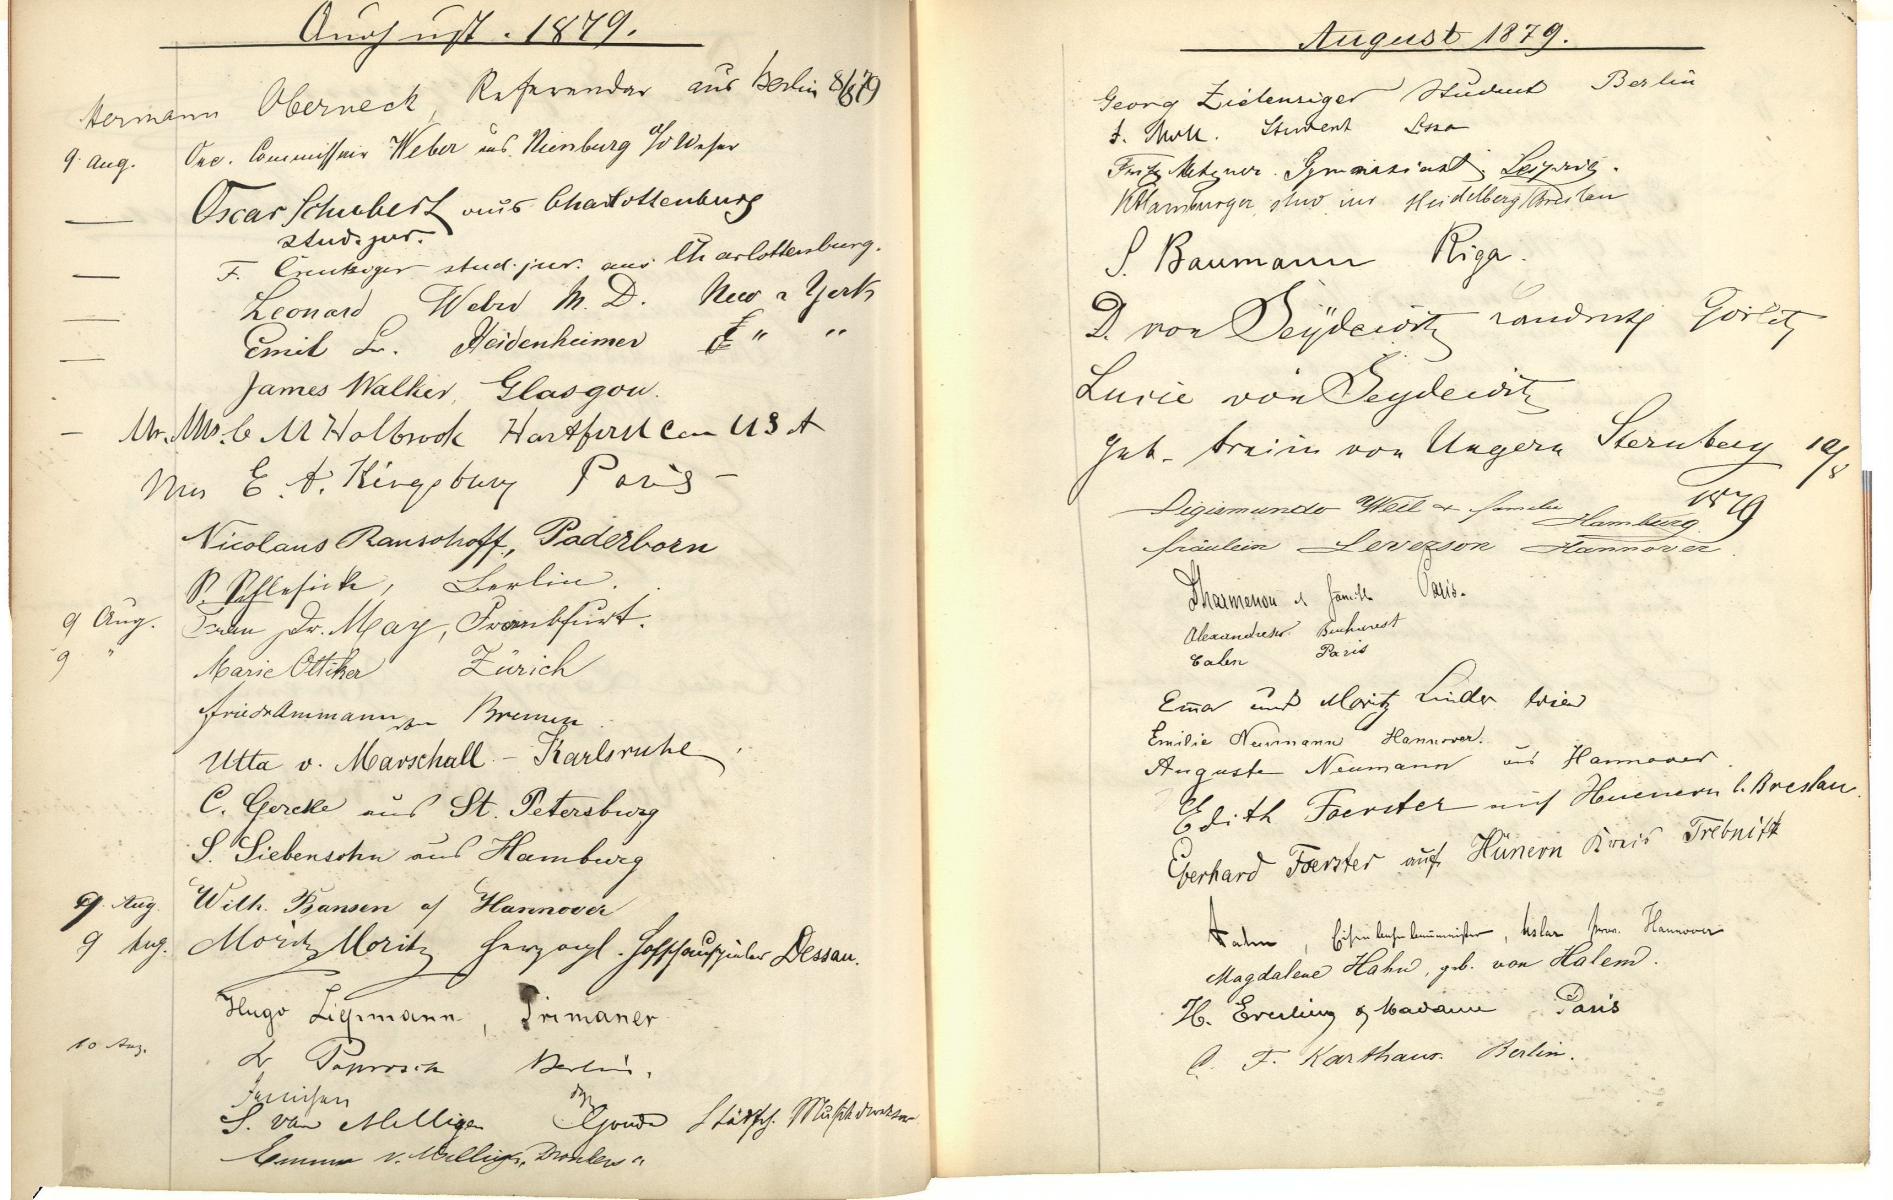 August. 1879.
Hermann Oberneck, Referendar aus Berlin 8/8 79
9. Aug. Oec. Commissair Weber aus Nienburg a/d Weser
— Oscar Schubert aus Charlottenburg
stud. jur.
— F. Creutziger stud. jur. aus Charlottenburg.
— Leonard Weber M. D. New-York
— Emil L. Heidenheimer " "
James Walker, Glasgow.
— Mr. Mrs. C M Holbrook Hartford Con U S A
Mrs E. A. Kingsbury Paris –
Nicolaus Ransohoff, Paderborn
P. Berlin.
9 Aug. Frau Dr. May, Frankfurt.
9 " Marie Ottiker Zürich
Friedr Ammann Bremen
Utta v. Marschall – Karlsruhe
C. Gercke aus St. Petersburg
S. Siebensohn aus Hamburg
9. Aug. Wilh. Hannover
9 Aug. Moritz Moritz Herzogl. Hofschauspieler Dessau.
Hugo Liepmann, Primaner
10 Aug. Berlin.
S. van Milligen Gouda Städtsch. Musikdirektor
Emma v. Milligen
August 1879.
Georg Zielenziger Student Berlin
J. Moll. Student Lissa
Fritz Metzner. Gymnasiast Leipzig.
Hamburger, stud jur Heidelberg/Breslau
S. Baumann Riga.
D. von Seÿdewitz Landrath Görlitz
Lucie von Seydewitz
geb. von Ungern Sternberg 10/8
1879
Sigismundo Weil & familie Hamburg
fräulein Leverson Hannover.
famille Paris.
Bucharest
Calen Paris
Ema und Moritz Linder Wien
Emilie Neumann Hannover.
Auguste Neumann aus Hannover.
Edith Foerster auf Huenern b. Breslau.
Eberhard Foerster auf Hünern Kreis Trebnitz
Hahn, Eisenbahnbaumeister, Uslar Prov. Hannover
Magdalene Hahn, geb. von Halem.
H. & Madame Paris
C. F. Karthaus. Berlin.